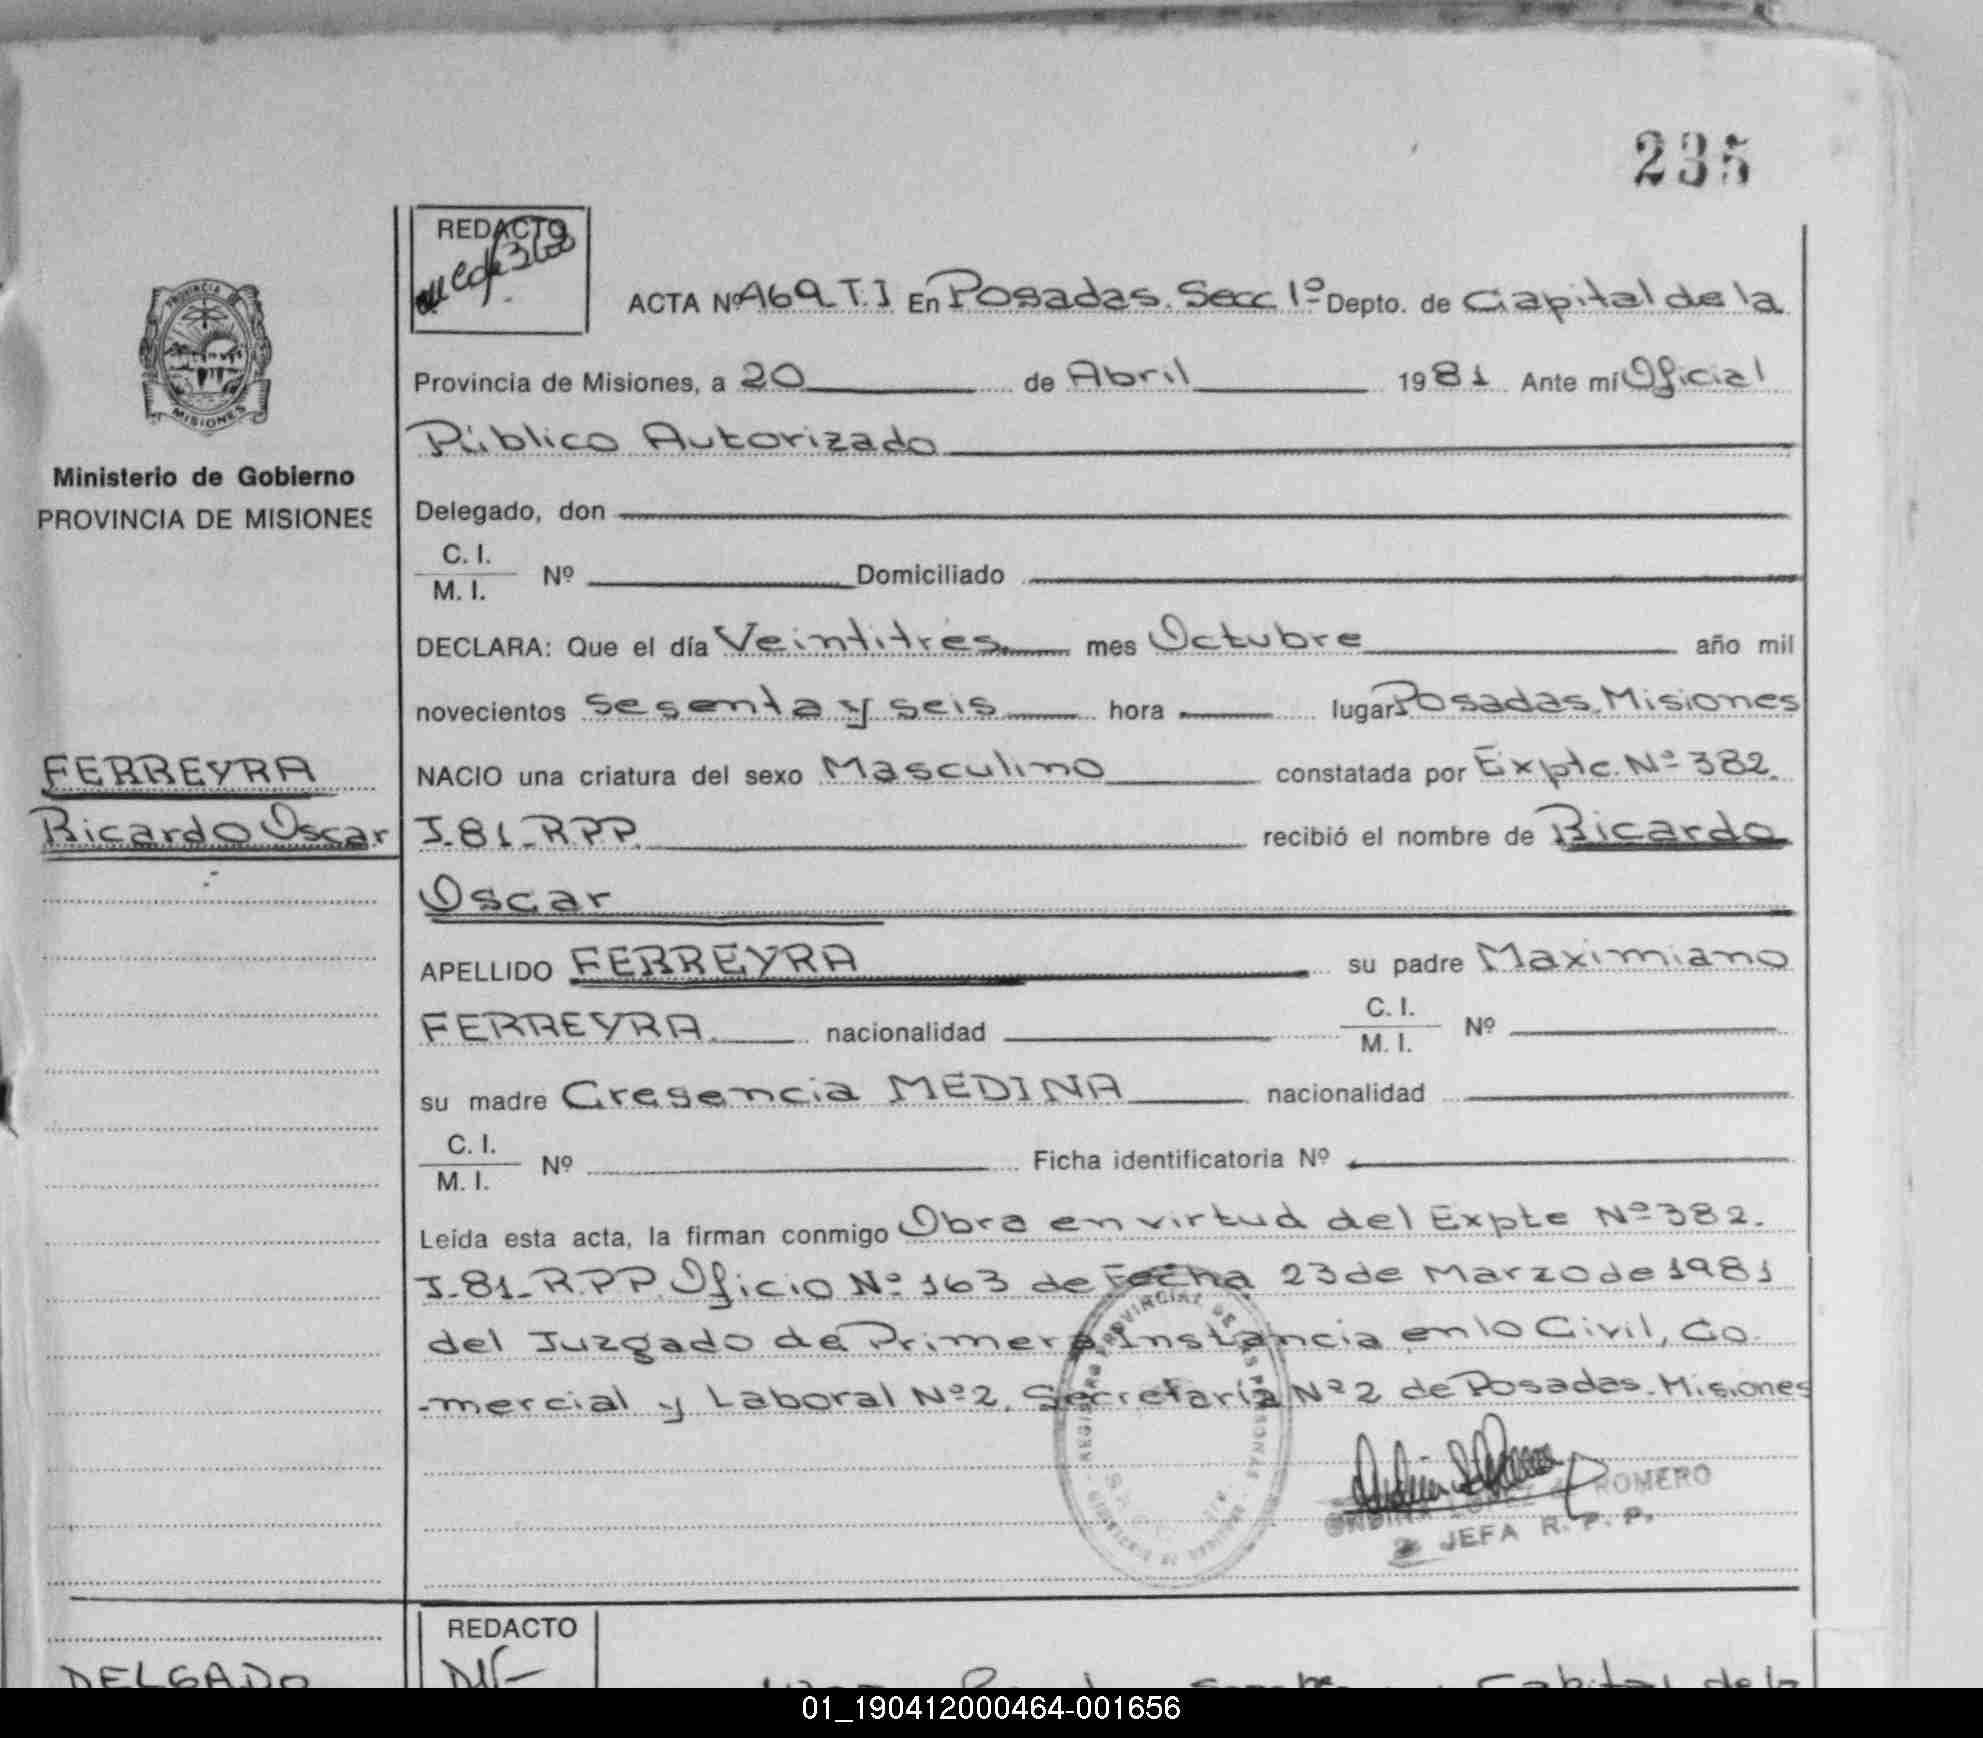 235
REDACTO
ACTA Nº 469 T.I En Posadas. Secc 1º Depto. de Capital de la
Provincia de Misiones, a 20 de Abril 1981 Ante mí Oficial
Público Autorizado
PROVINCIA DE
MISIONES
Ministerio de Gobierno
PROVINCIA DE MISIONES
Delegado, don
C. I.
M. I. Nº Domiciliado
DECLARA: Que el día Veintitres mes Octubre año mil
novecientos sesenta y seis hora lugar Posadas. Misiones
FERREYRA
Ricardo Oscar
NACIO una criatura del sexo Masculino constatada por Expte. Nº 382.
J-81-R.P.P. recibió el nombre de Ricardo
Oscar
APELLIDO FERREYRA su padre Maximiano
FERREYRA nacionalidad C. I.
M. I. Nº
su madre Cresencia MEDINA nacionalidad
C. I.
M. I. Nº Ficha identificatoria Nº
Leída esta acta, la firman conmigo Obra en virtud del Expte Nº 382.
J-81-R.P.P. Oficio Nº 163 de Fecha 23 de Marzo de 1981
del Juzgado de Primera Instancia en lo Civil, Co
-mercial y Laboral Nº 2. Secretaría Nº 2 de Posadas. Misiones
LOPEZ ROMERO
JEFA R. P. P.
REDACTO
DELGADO
Capital de la
01_190412000464-001656